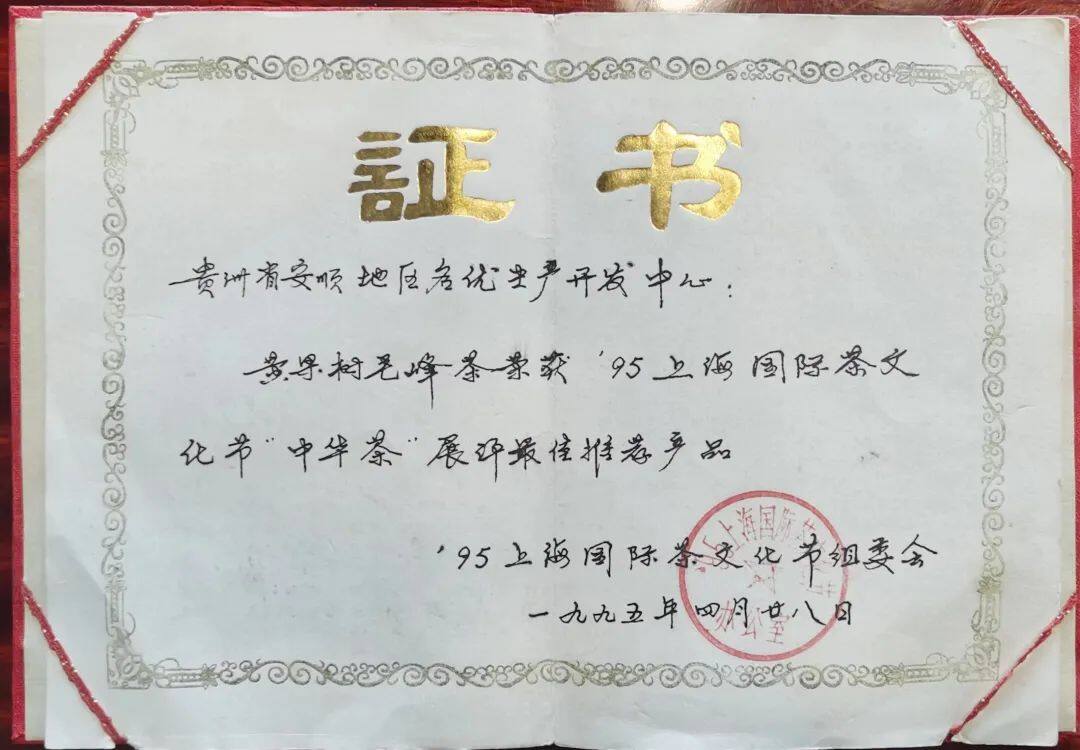 証书
贵州省安顺地区名优生产开发中心：
黄果树毛峰茶荣获 '95上海国际茶文
化节"中华茶"展评最佳推荐产品
'95上海国际茶文化节组委会
一九九五年四月廿八日
上海国际
办公室